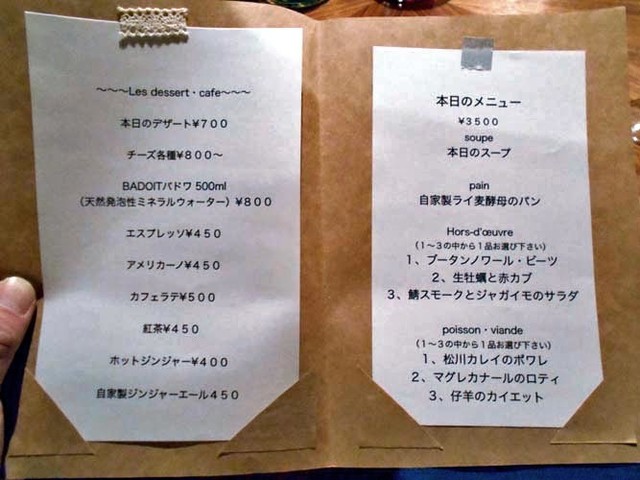 〜〜〜Les dessert・cafe〜〜〜
本日のデザート¥７００
チーズ各種¥８００〜
BADOITバドワ 500ml
（天然発泡性ミネラルウォーター）¥８００
エスプレッソ¥４５０
アメリカーノ¥４５０
カフェラテ¥５００
紅茶¥４５０
ホットジンジャー¥４００
自家製ジンジャーエール４５０
本日のメニュー
¥３５００
soupe
本日のスープ
pain
自家製ライ麦酵母のパン
Hors-d'œuvre
（１〜３の中から１品お選び下さい）
１、ブータンノワール・ビーツ
２、生牡蠣と赤カブ
３、鯖スモークとジャガイモのサラダ
poisson・viande
（１〜３の中から１品お選び下さい）
１、松川カレイのポワレ
２、マグレカナールのロティ
３、仔羊のカイエット